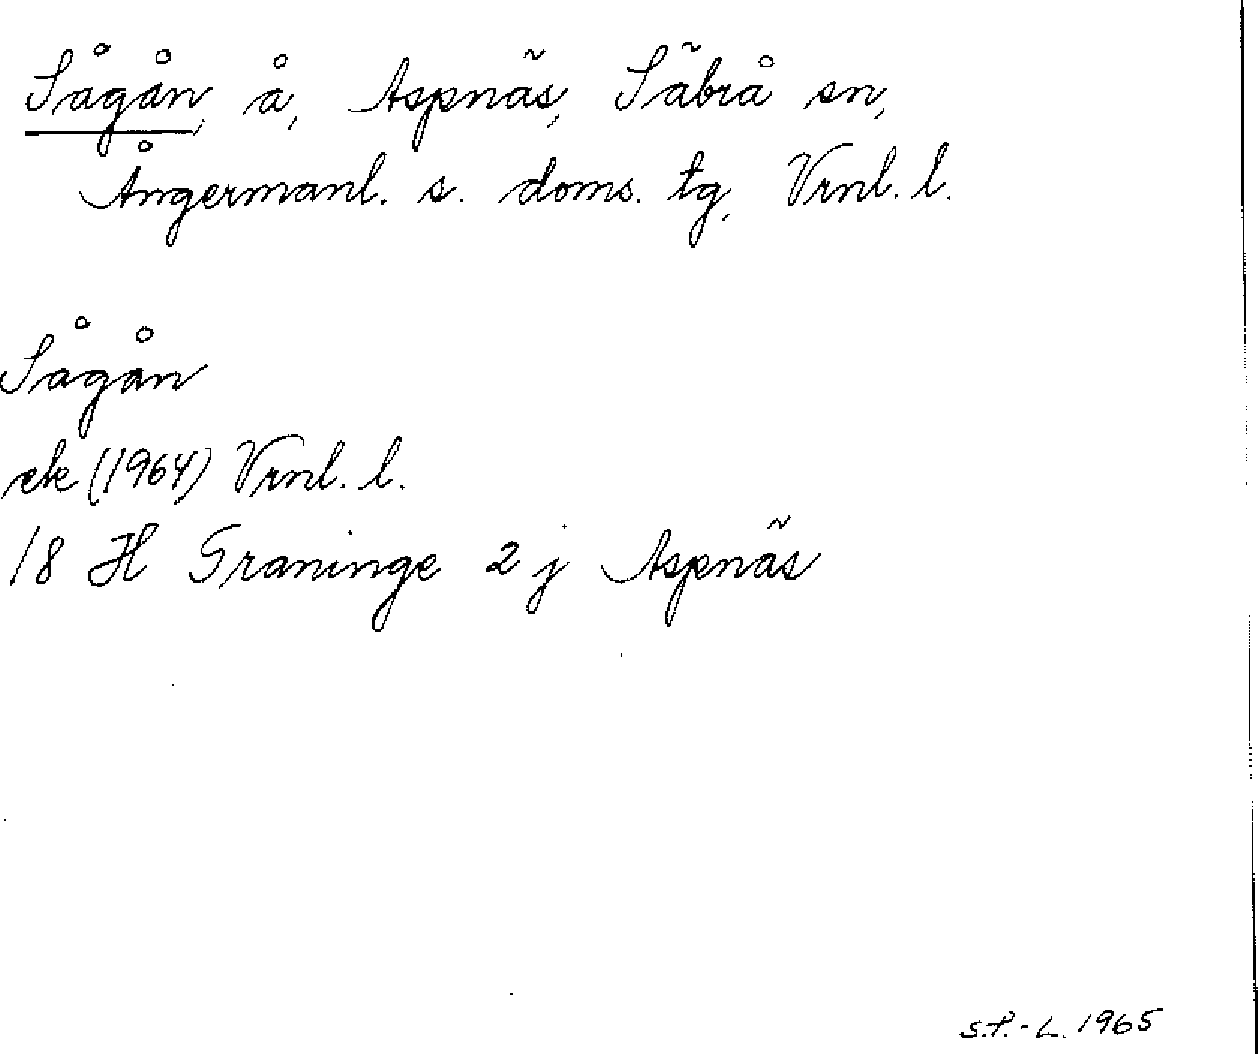 Sågån, å, Aspnäs, Säbrå sn,
Ångermanl. s. doms. tg, Vrnl. l.
Sågån
ek (1964) Vrnl. l.
18 H Graninge 2 j Aspnäs
S.P.-L. 1965